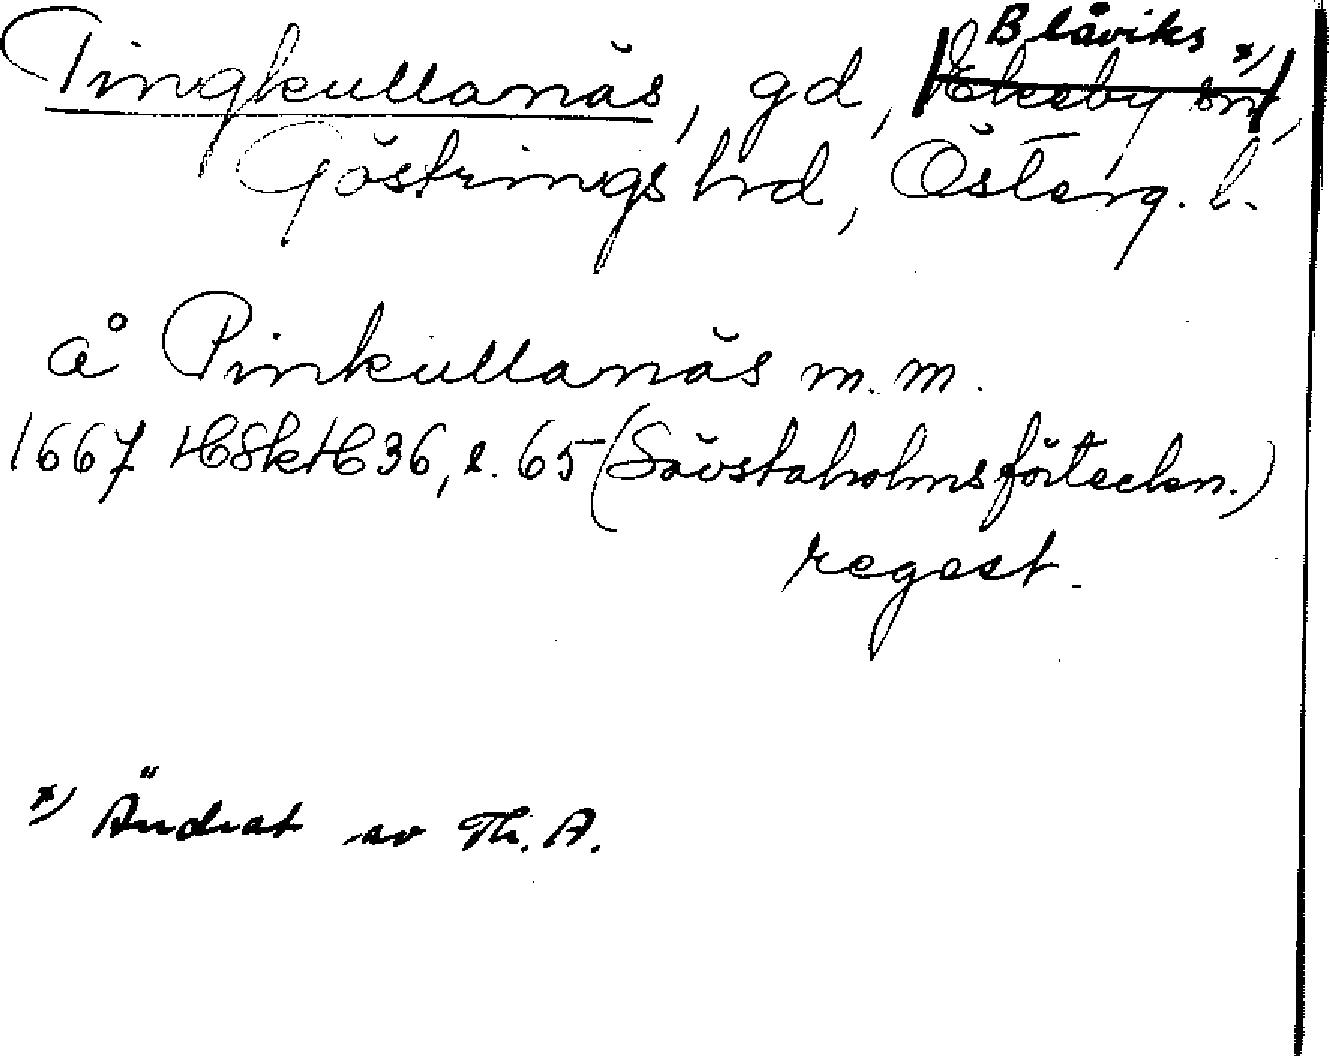 Blåviks x)
Tingkullanäs, gd, Ekeby sn,
Göstrings hrd, Österg. l.
å Pinkullanäs m.m.
1667 HSkH 36, s. 65 (Sävstaholmsförteckn.)
regest.
x) Ändrat av Th. A.